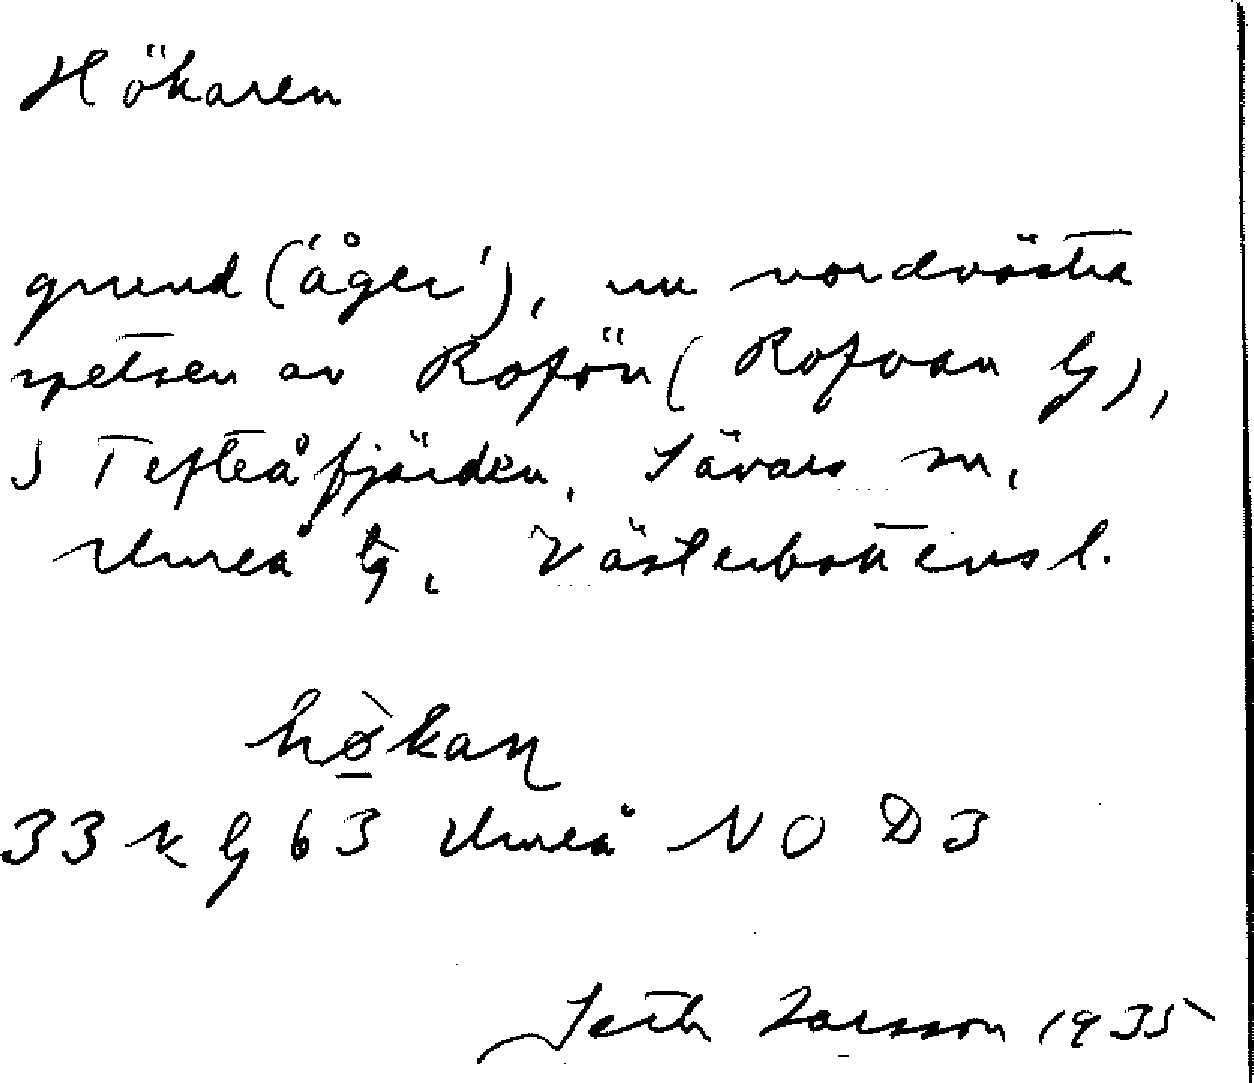 Hökaren
grund ('åger'), nu nordvästra
spetsen av Rofön (Rofvan G),
S Tefteåfjärden, Sävars sn,
Umeå tg, Västerbottens l.
hø̀kan
33 k G 63 Umeå NO D3
Seth Larsson 1935